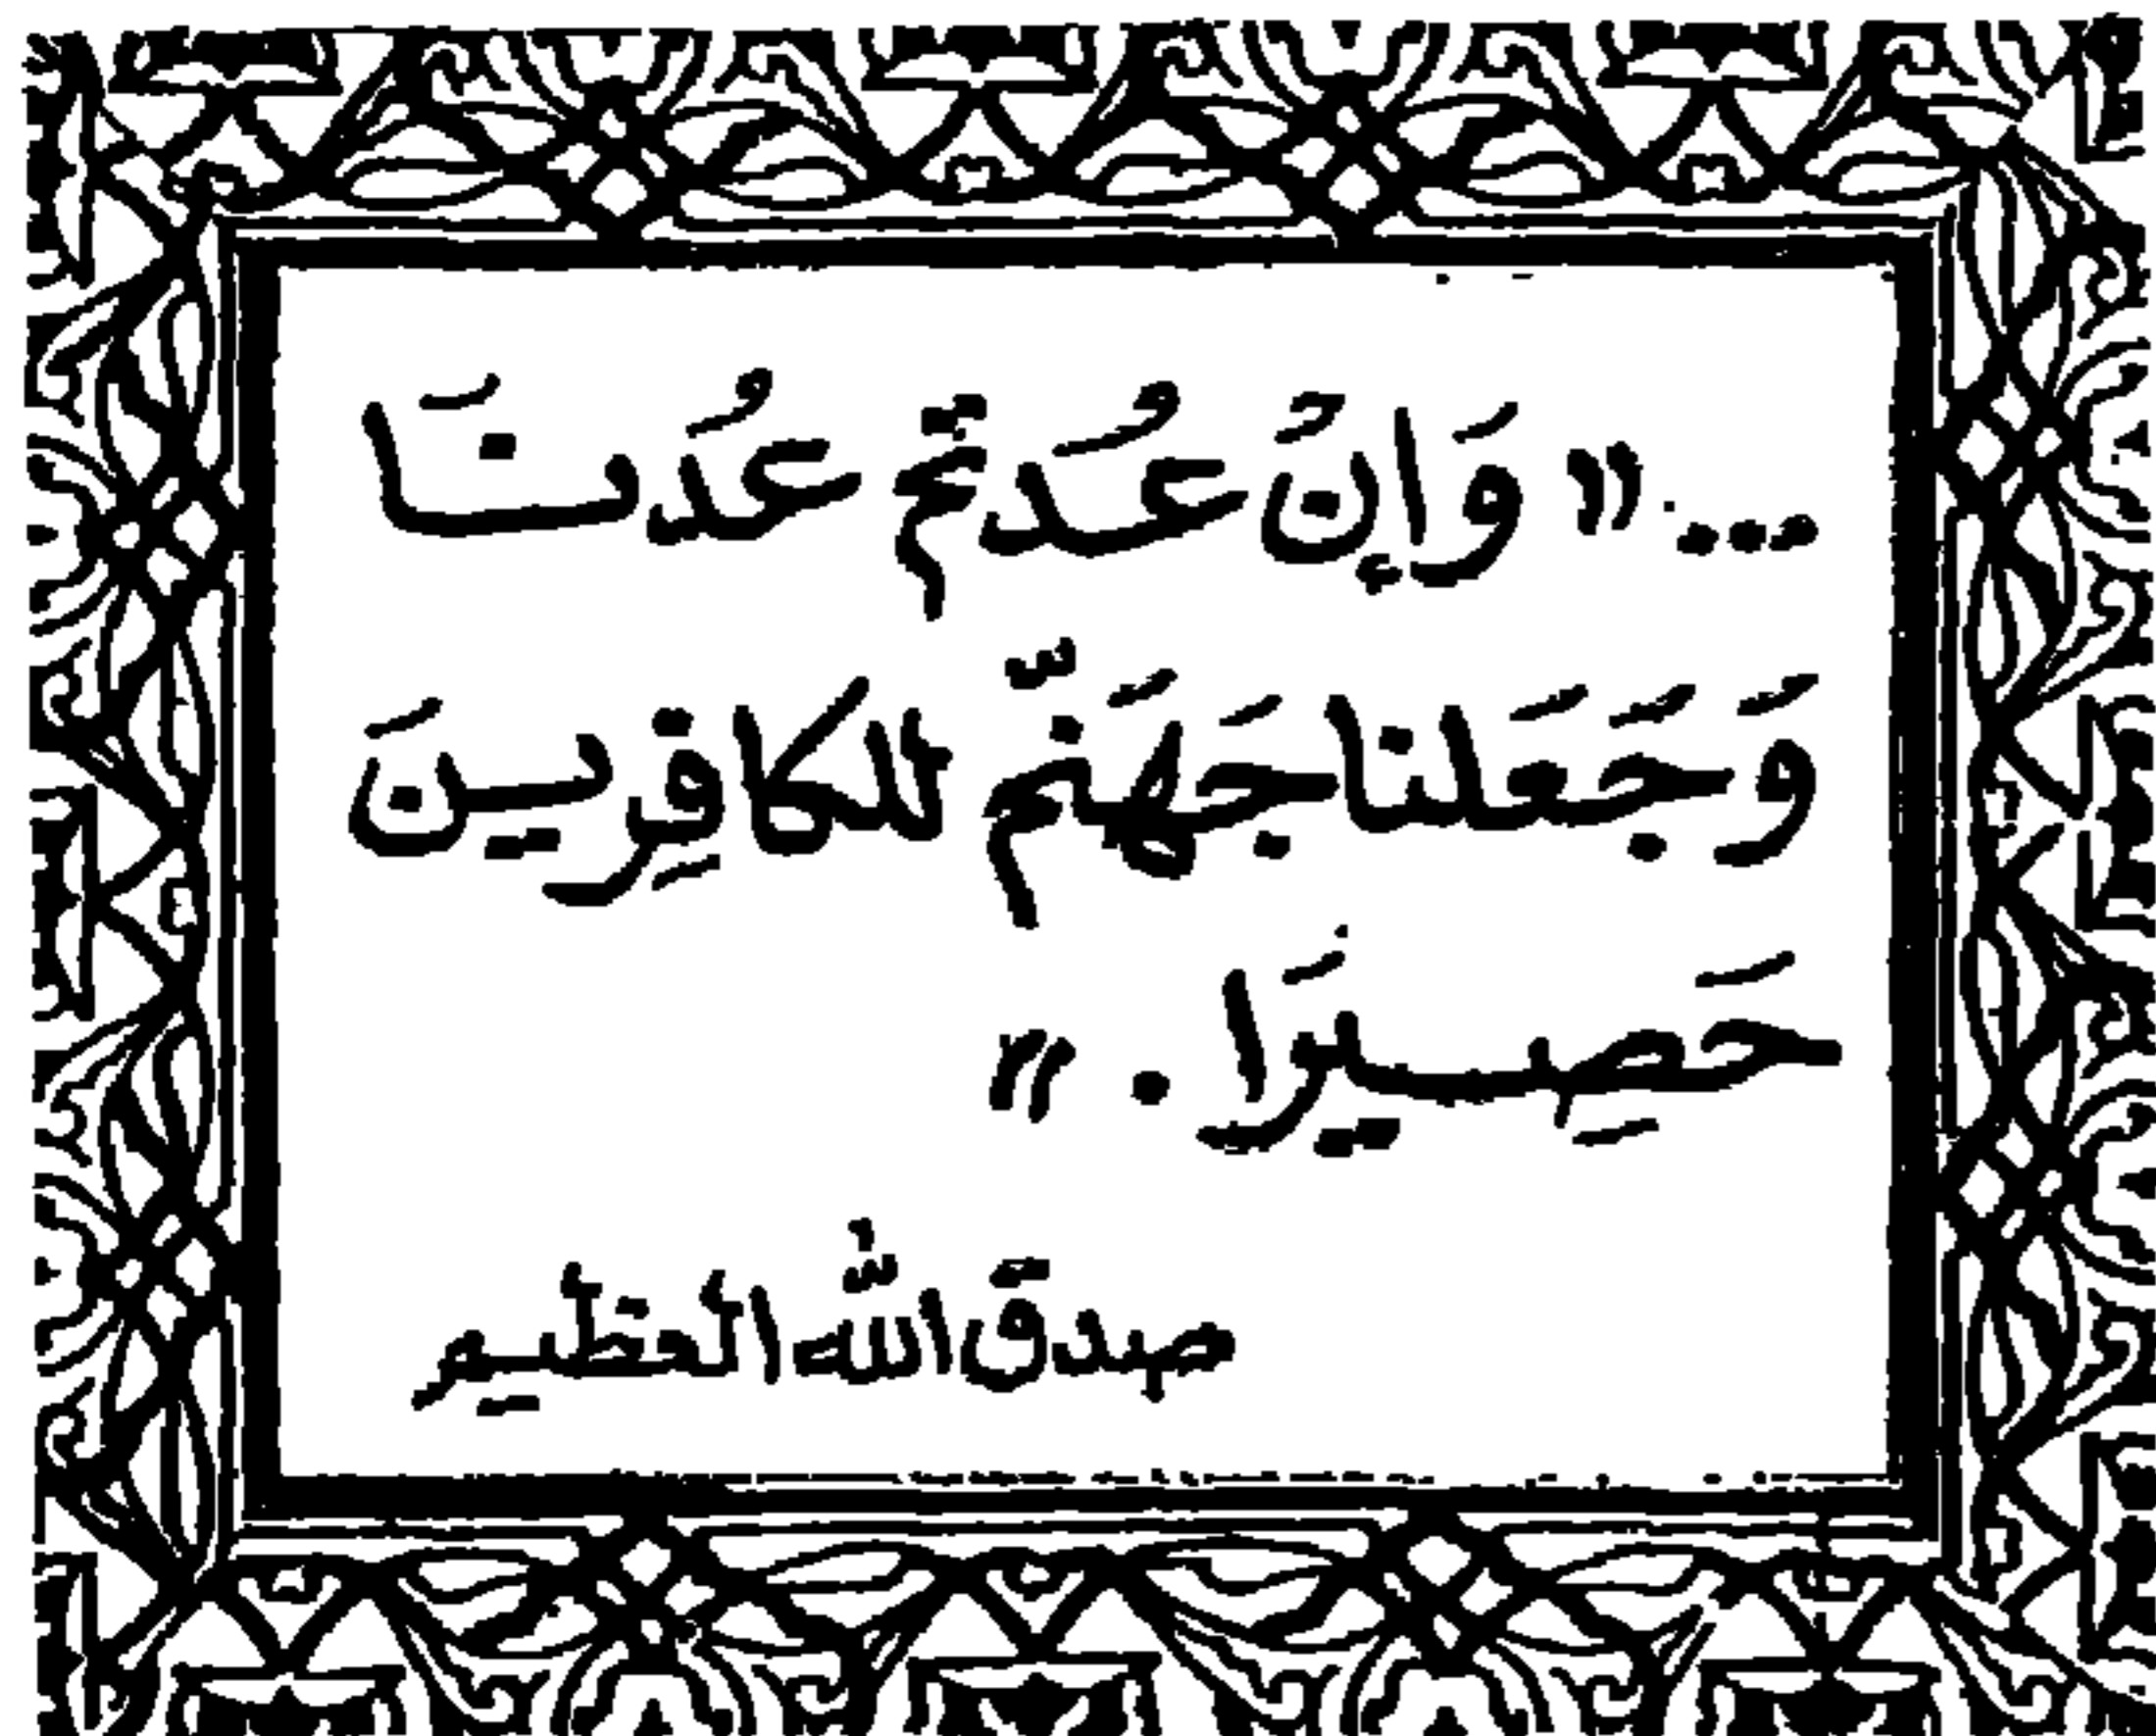 ... « وَإِنْ عُدتُّمْ عُدْنَا
وَجَعَلنا جَهَنَّم للكافِرِينَ
حَصِيرًا . »
صدقَ اللّه العظيم